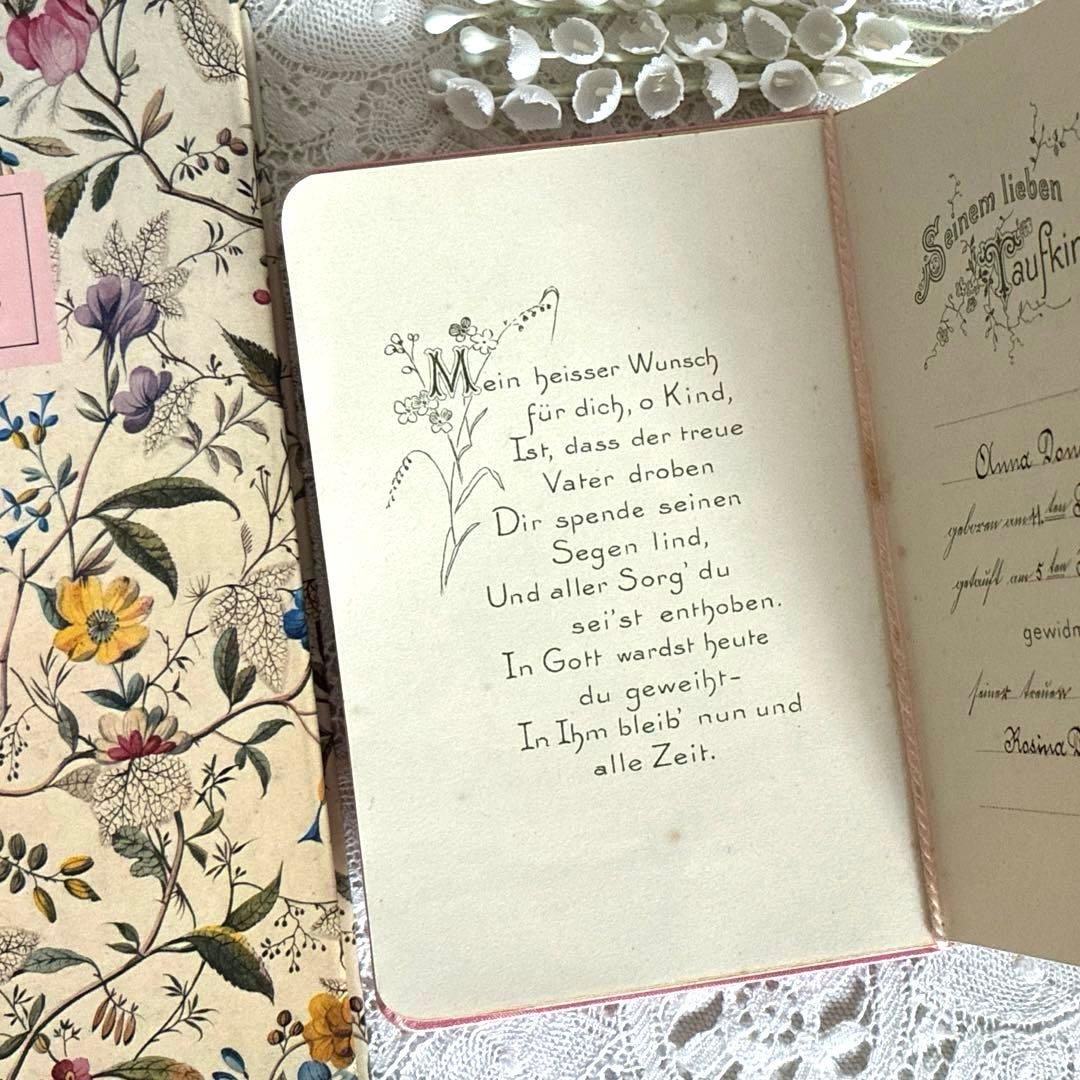 Mein heisser Wunsch
für dich, o Kind,
Ist, dass der treue
Vater droben
Dir spende seinen
Segen lind,
Und aller Sorg' du
sei'st enthoben.
In Gott wardst heute
du geweiht-
In Ihm bleib' nun und
alle Zeit.
Seinem lieben
Taufkin
Anna Don
geboren am 11. ten
getauft am 5 ten
gewidm
seiner treuen
Rosina D